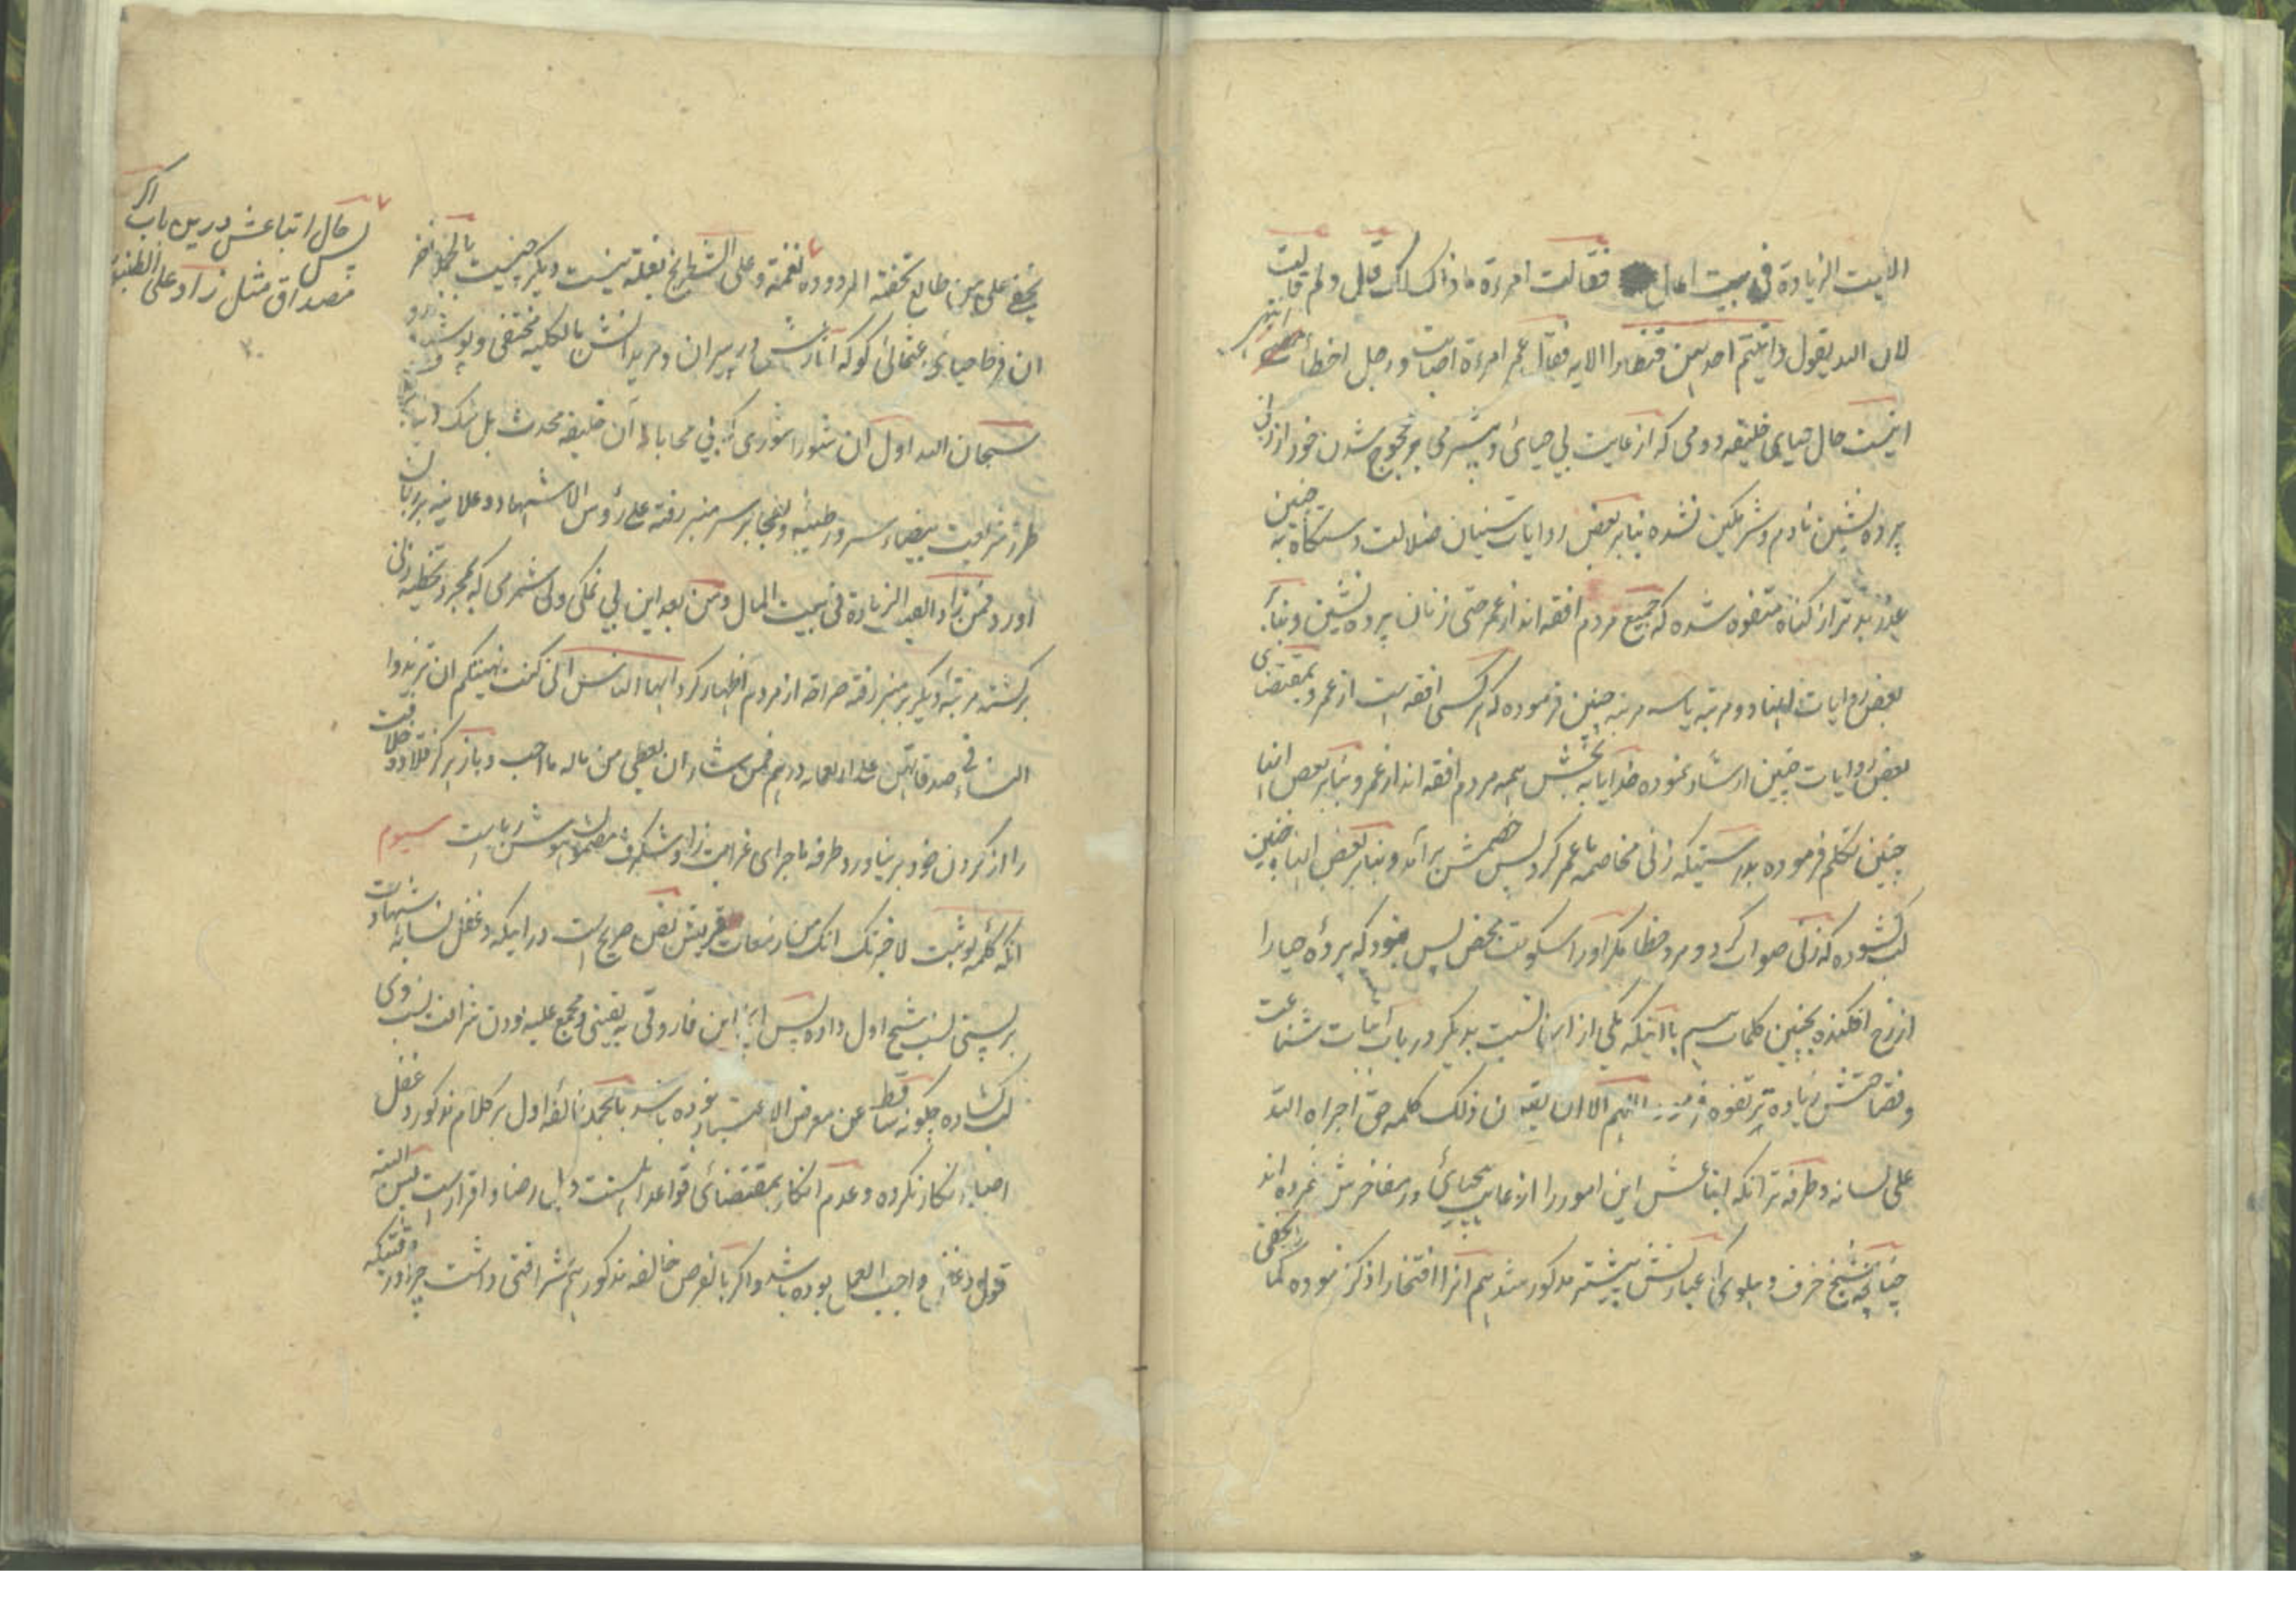 الایت الزیادة فی بیت المال فقالت امرءة ما ذاک لک قال ولم قالت
لان الله یقول واتیتم احدیهن قنطارا الایه فقال عمر امرءة اصابت ورجل اخطأ انتهی
اینست حال حیای خلیفه دومی که از غایت بی حیائی و بیشرمی بر محجوج شدن خود از زنی
پرده نشین نادم و شرمگین نشده بنابر بعض روایات سنیان ضلالت دستگاه به چنین
عذر بدتر از گناه متفوه شده که جمیع مردم افقه اند از عمر حتی زنان پرده نشین و بنابر
بعض روایات ایضا دو مرتبه یا سه مرتبه چنین فرموده که هر کسی افقه است از عمر و بمقتضای
بعض روایات چنین ارشاد نموده خدایا به بخش همه مردم افقه اند از عمر و بنابر بعض ایضا
چنین تکلم فرموده بدرستیکه زنی مخاصمه با عمر کرد پس خصمش برآمد و بنابر بعض ایضا چنین
لب گشوده که زنی صواب کرد و مرد خطا مگر اورا سکوت محض بس نبود که پرده حیا را
از رخ افکنده بچنین کلمات سیم با اینکه یکی از اینها نسبت بدیگر در باب اثبات شناعت
و فضاحتش زیاده تر تفوه اللهم الا ان یقه ن ذلک کلمه حق اجراه الله
علی لسانه و طرفه تر آنکه اتباعش این امور را از غایت بیحیائی در مفاخرش شمرده اند
چنانچه شیخ خرف دهلوی که عبارتش پیشتر مذکور شد هم انرا افتخارا ذکر نموده کما لایخفی
یخفی علی من طالع تحفته المردوده نغمته و علی الشطرنج بغلة نیست دیگر چیست بالجمله اخر
ان فرط حیای عثمانی کو که آثارش در پیران و مریدانش بالکلیه مختفی و پوشیده
سبحان الله اول ان شورا شوری که بی محابا آن خلیفه محدث بل شک
طرز شریعت بیضاء سرور طیبه و بطحا بر سر منبر رفته علی رؤس الاشهاد و علانیه بر زبان
اورد فمن زاد القیت الزیادة فی بیت المال و من بعد این بی نمکی و بی شرمی که بمجرد تخطیه زنی
برگشته مرتبه دیگر بر منبر رفته صراحة از مردم اظهار کرد ایها الناس انی کنت نهیتکم ان تزیدوا
النساء فی صدقاتهن علی اربعمایه درهم فمن شاء ان یعطی من ماله ما احب و باز هرگز قلاده خلافت
را از گردن خود بر نیاورد طرفه ماجرای غرابت زا و شگرف مضمون هوش رباست سیوم
انکه کلمه لو ثبت لاخبرتک انک من زمعات قریش نص صریح است در اینکه دغفل نسابه شهادت
بر پستی نسب شیخ اول داده پس این فاروقی به یقینی و مجمع علیه بودن شرافت نسب وی
لب گشاده چگونه ساقط عن معرض الاعتبار نبوده باشد بالجمله خالفه اول بر کلام مذکور دغفل
اصلا انکار نکرده و عدم انکار بمقتضای قواعد اهلسنت دلیل رضا و اقرار است پس البته
قول دغفل واجب العمل بوده باشد و اگر بالفرض خالفه مذکور هم شرافتی داشت چرا در وقتیکه
پس حال اتباعش درین باب اگر
مصداق مثل زاد علی الطنبور